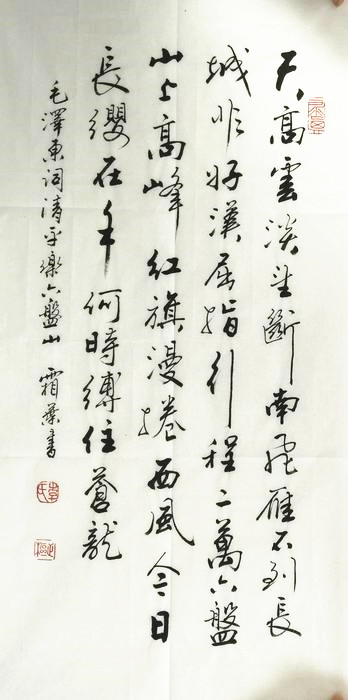 天高雲淡望斷南飛雁不到長
城非好漢屈指行程二萬六盤
山上高峰紅旗漫捲西風今日
長纓在手何時縛住蒼龍
毛澤東詞清平樂六盤山 霜葉書